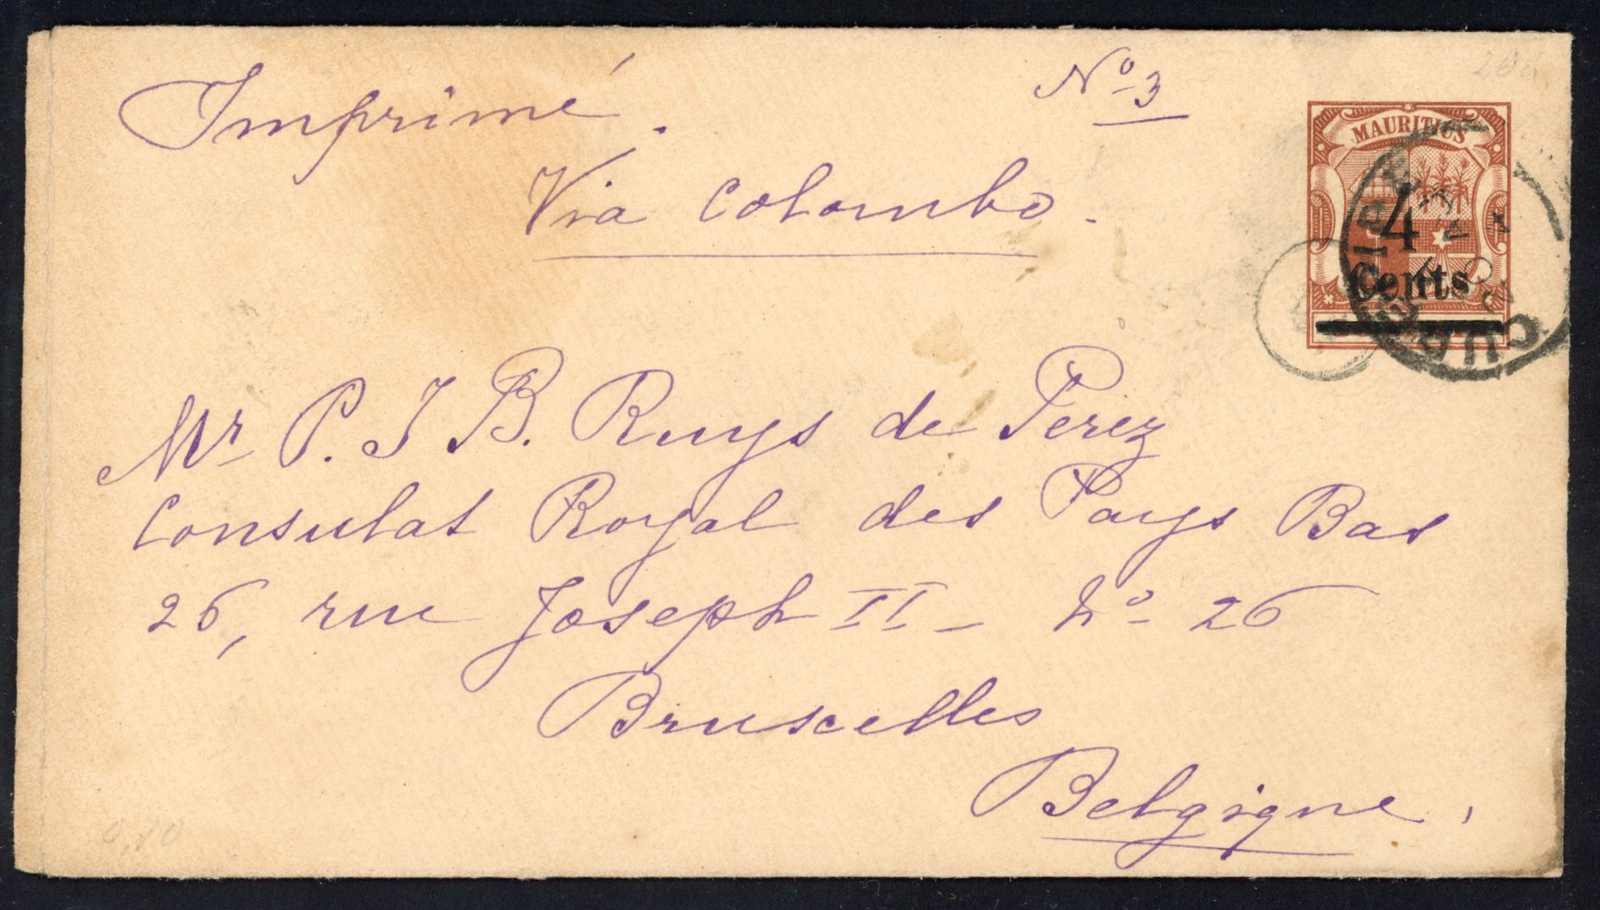 Imprimé.
No 3
Via Colombo.
MAURITIUS
4
Cents
CUREPIPE
Mr P. J B. Ruys de Perez
Consulat Royal des Pays Bas
26, rue Joseph II - No 26
Bruxelles
Belgique,
0,10